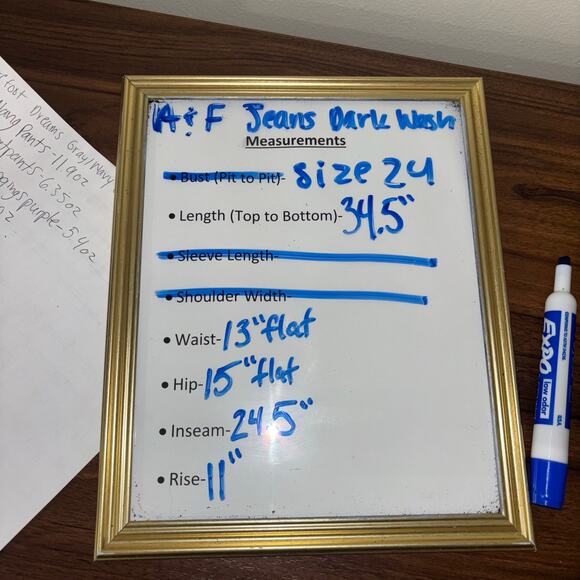 A & F Jeans Dark Wash
Measurements
• Bust (Pit to Pit)- size 24
• Length (Top to Bottom)-34.5"
• Sleeve Length-
• Shoulder Width-
• Waist-13" flat
• Hip-15" flat
• Inseam-24.5"
• Rise-11"
Dreams Gray/Navy
Pants-11.9oz
pants-6.35oz
purple-5.4oz
oz
EXPO
low odor